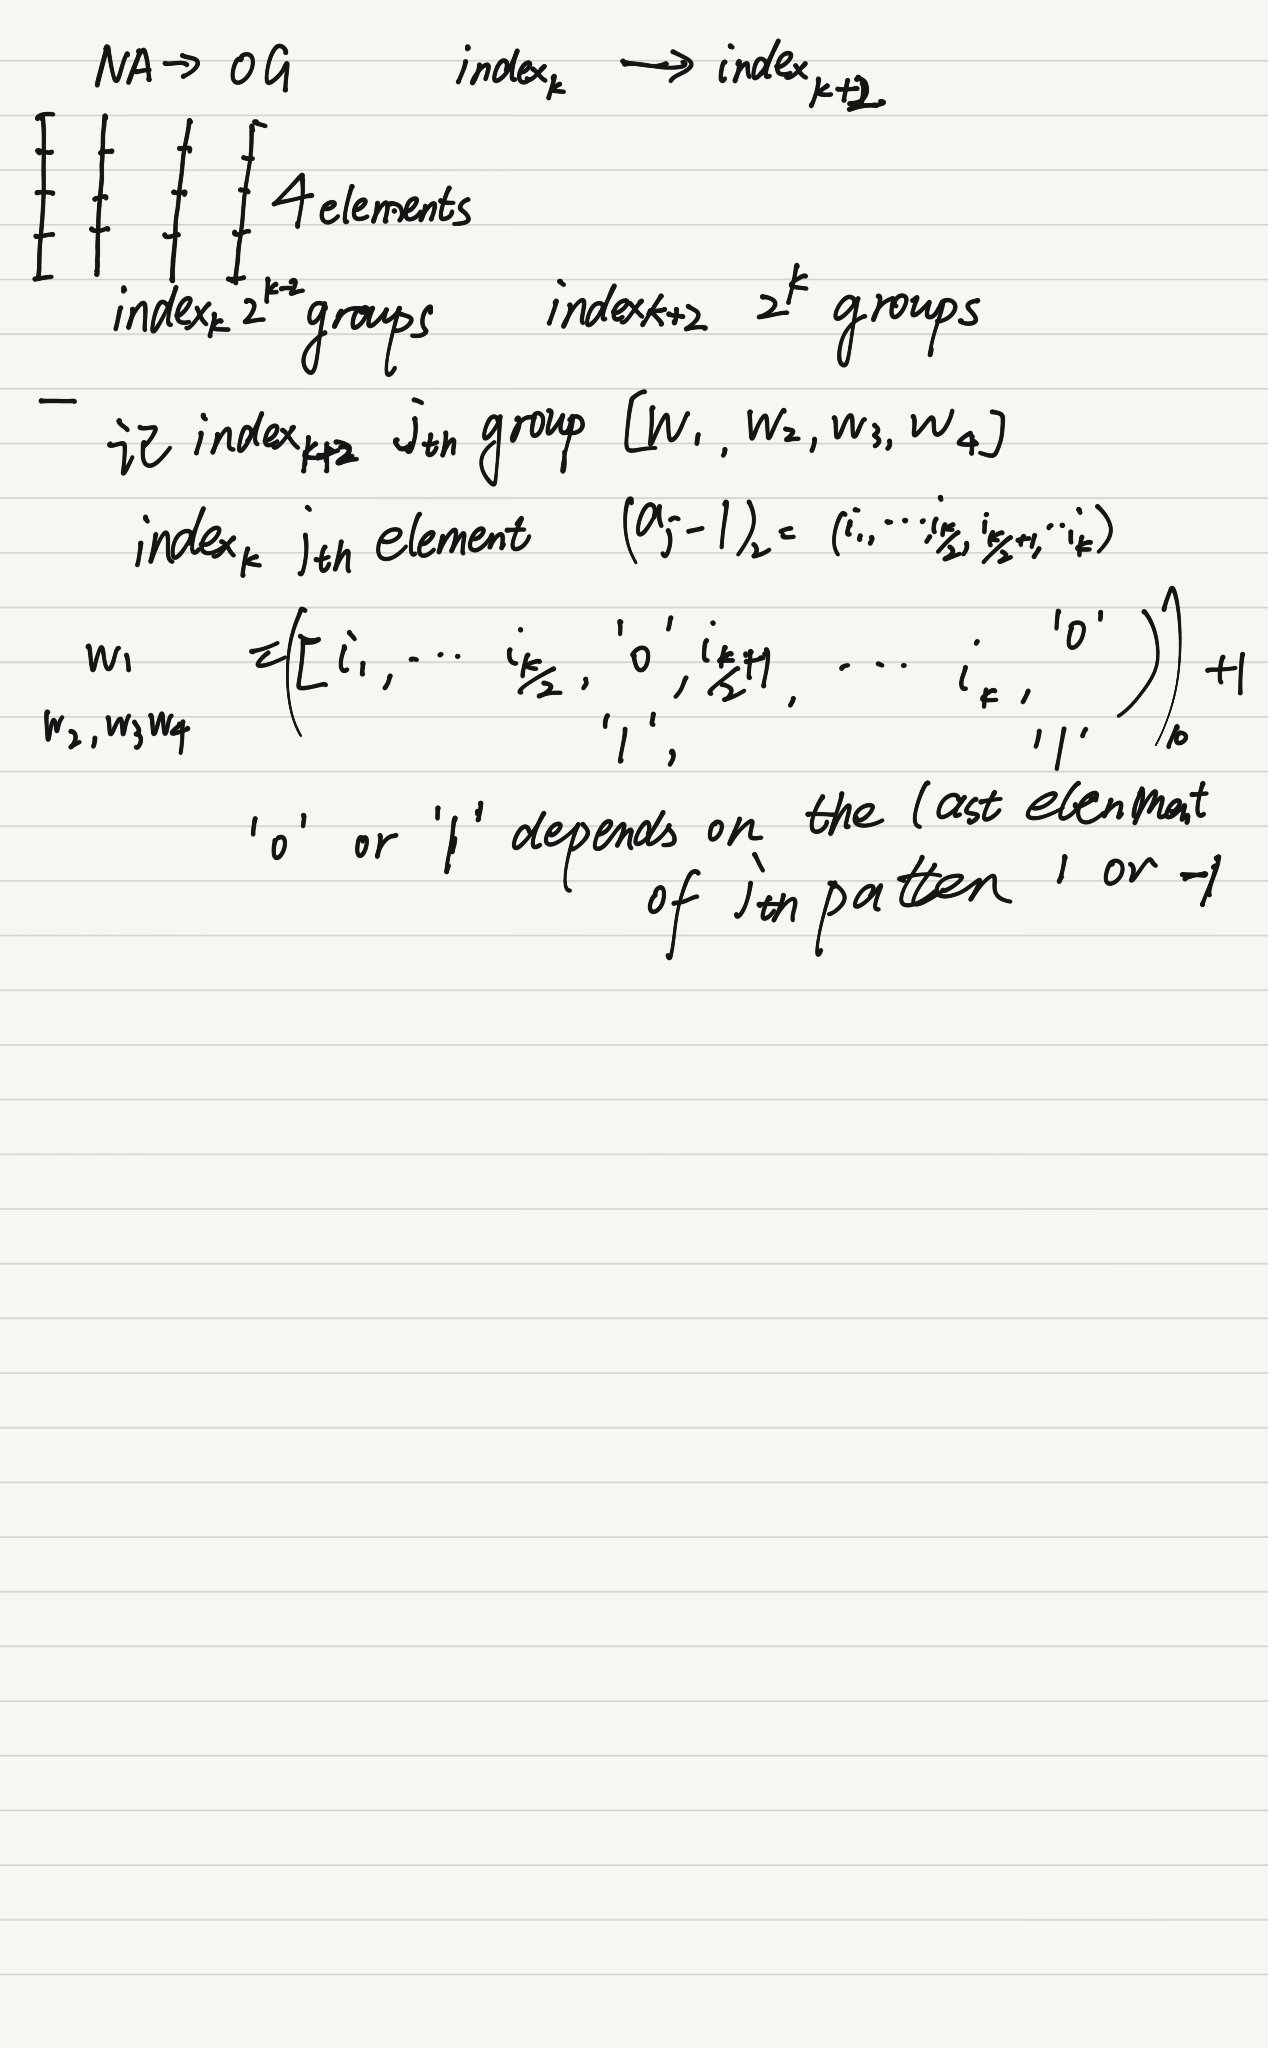 NA → OG index_k → index_{k+2}
4 elements
index_k 2^{k-2} groups index_{k+2} 2^k groups
记 index_{k+2} j_th group [W_1, W_2, W_3, W_4]
index_k j_th element (a_j - 1)_2 = (i_1, ..., i_{k/2}, i_{k/2+1}, ... i_k)
W_1 = ([i_1, ... i_{k/2}, '0', i_{k/2+1}, ... i_k, '0'))_{10} + 1
W_2, W_3 W_4 '1', '1'
'0' or '1' depends on the last elenment
of j_th patten 1 or -1